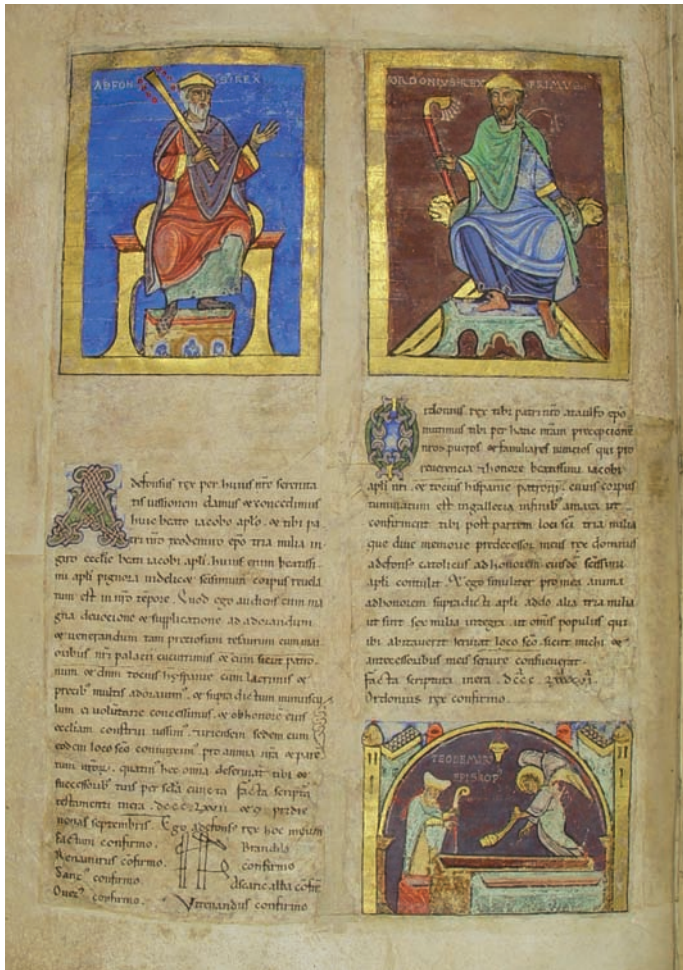 ADEFONSUS·REX
defonsus rex per huius nr̄e serenita
tis iussionem damus & concedimus
huic beato iacobo aplō. & tibi pa
tri nr̄o teodemiro epō tria milia in
giro ecclīe beati iacobi apl̄i. huius enim beatissi
mi apl̄i pignora uidelicet sc̄issimum corpus reuela
tum est in nr̄o tēpore. Quod ego audiens cum ma
gna deuocione & supplicatione ad adorandum
& uenerandum tam preciosum tesaurum cum mai
oribus nr̄i palacii cucurrimus & eum sicut patro
num & dn̄m tocius hyspanie cum lacrimis &
precib; multis adorauimꝰ. & supradictum munuscu
lum ei uoluntarie concessimus. & ob honorē eius
eccl̄iam construi iussimꝰ.
eodem loco sc̄o coniunximꝰ pro anima nr̄a & paren
tum nr̄orꝝ. quatinꝰ hec omīa deseruiat tibi &
successorib; tuis per sc̄la cuncta. Facta scriptā
testamenti in era. dccc. &
nonas septembris. Ego adefonsꝰ rex hoc meum
factum confirmo. Brandila
Renamirus cōfirmo. confirmo
Sancꝰ confirmo. Ascaric abba cōfir̄
confirmo. confirmo
ORDONIUS·REX PRIMUS
rdonius rex tibi patri nr̄o ataulfo epō
mittimus tibi per hanc nr̄am preceptionē
nr̄os pueros & familiares nuncios qui pro
reuerencia & honore beatissimi iacobi
apl̄i nr̄i. & tocius hispanie patroni. cuius corpus
tumulatum est in gallecia infinibꝰ amaea ut
confirment tibi post partem loci sc̄i tria milia
que diue memorie predecessor meus rex domnus
adefonsꝰ catolicus ad honorem eiusdē sc̄issimi
apl̄i contulit. & ego similiter pro mea anima
ad honorem supradicti apl̄i addo alia tria milia
ut sint sex milia integra. ut omīs populus qui
ibi abitauerit seruiat loco sc̄o. sicut michi &
antecessoribus meis seruire consueuerat.
facta scriptura in era. dccc.
Ordonius rex confirmo.
TEODEMIRꝰ
EPISCOPꝰ